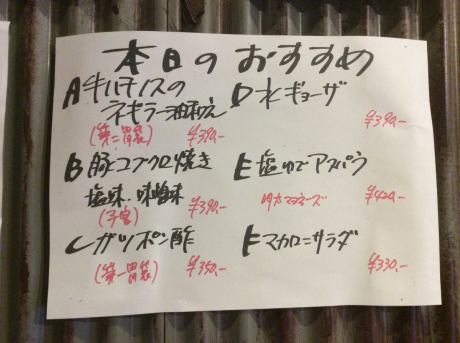 本日のおすすめ
A 牛ハチノスの
ネギラー油和え
(第二胃袋) ¥390.-
B 豚コブクロ焼き
塩味、味噌味
(子宮) ¥390.-
C ガツポン酢
(第一胃袋) ¥350.-
D 水ギョーザ
¥390.-
E 塩ゆでアスパラ
明太マヨネーズ ¥420.-
E マカロニサラダ
¥330.-